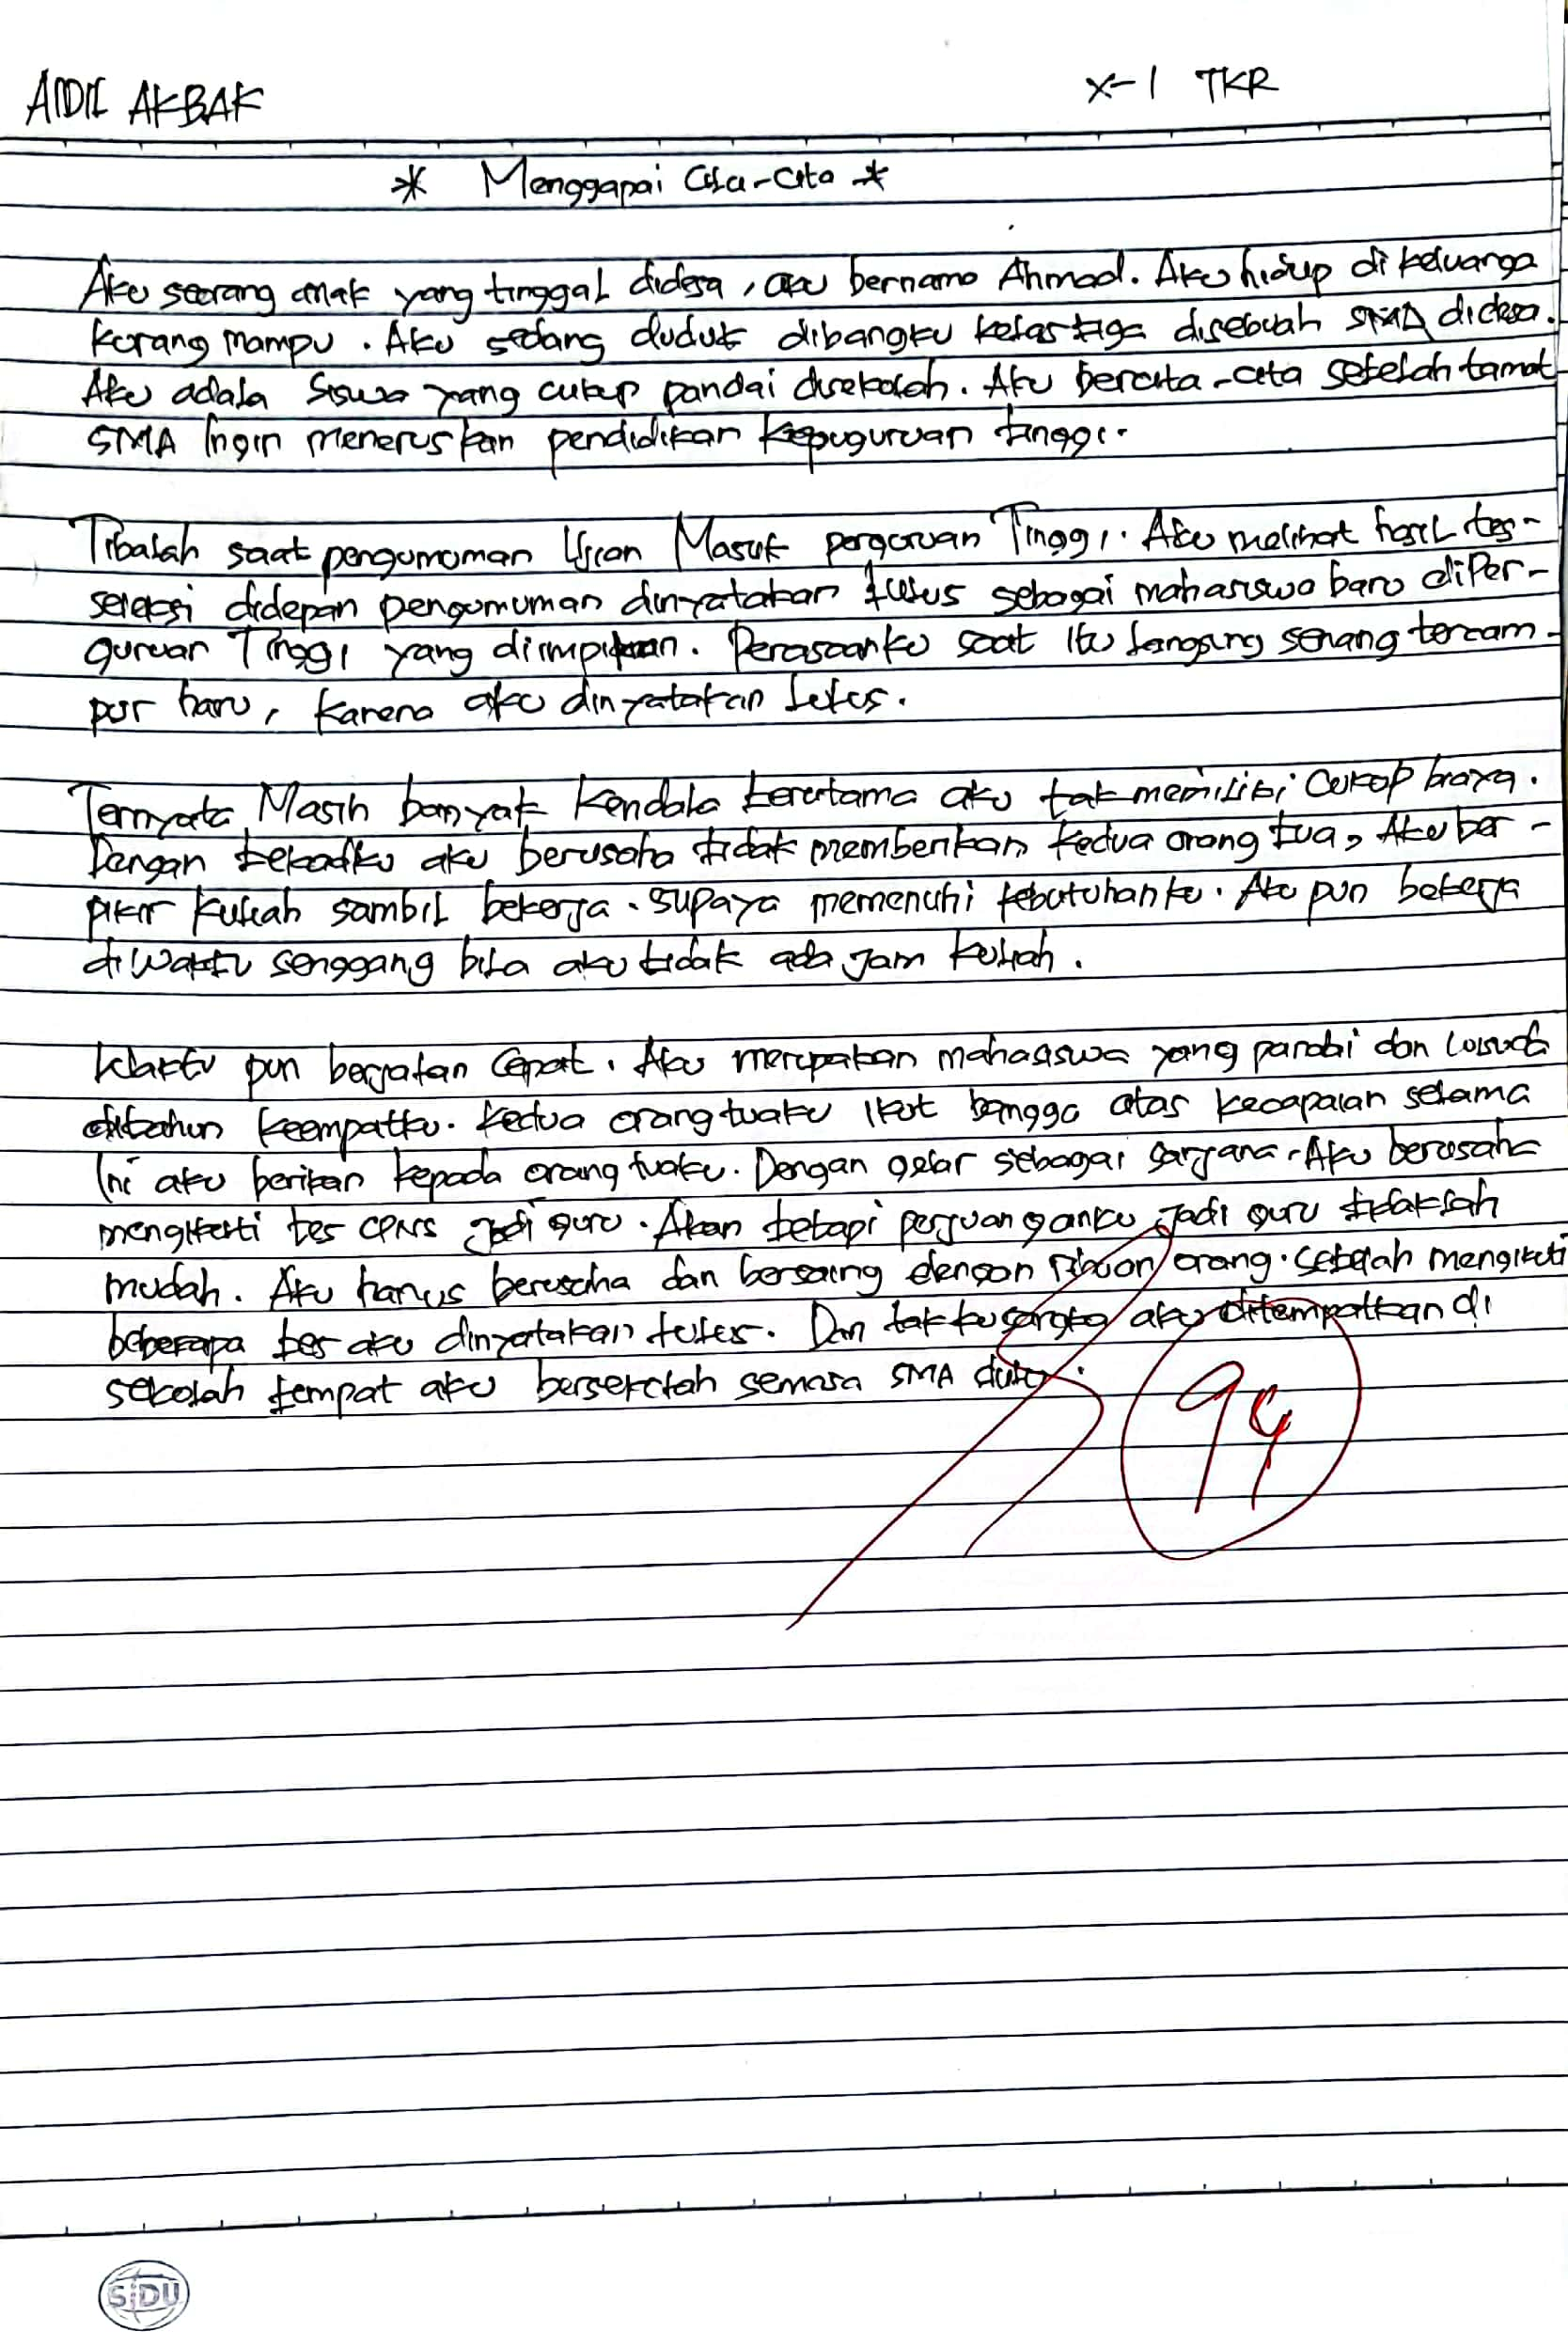 AIDIL AKBAR
X-1 TKR
* Menggapai Cita-Cita *
Aku seorang anak yang tinggal didesa, aku bernama Ahmad. Aku hidup di keluarga
kurang mampu. Aku sedang duduk dibangku kelas tiga disebuah SMA didesa.
Aku adala siswa yang cukup pandai disekolah. Aku bercita-cita setelah tamat
SMA Ingin meneruskan pendidikan kepuguruan tinggi.
Tibalah saat pengumuman Ujian Masuk perguruan Tinggi. Aku melihat hasil tes-
seleksi didepan pengumuman dinyatakan lulus sebagai mahasiswa baru diPer-
guruan Tinggi yang diimpikan. Perasaanku saat itu langsung senang tercam-
pur haru, karena aku dinyatakan lulus.
Ternyata Masih banyak kendala terutama aku tak memiliki cukup biaya.
Dengan tekadku aku berusaha tidak memberikan kedua orang tua, Aku ber-
pikir kuliah sambil bekerja. supaya memenuhi kebutuhanku. Aku pun bekerja
diwaktu senggang bila aku tidak ada jam kuliah.
Waktu pun berjalan cepat. Aku merupakan mahasiswa yang pandai dan wisuda
ditahun keempatku. kedua orangtuaku ikut bangga atas kecapaian selama
Ini aku berikan kepada orang tuaku. Dengan gelar sebagai sarjana. Aku berusaha
mengikuti tes CPNS jadi guru. Akan tetapi perjuanganku jadi guru tidaklah
mudah. Aku harus berusaha dan bersaing dengan Ribuan orang. setelah mengikuti
beberapa tes aku dinyatakan lulus. Dan tak kusangka aku ditempatkan di
sekolah tempat aku bersekolah semasa SMA dulu.
94
SiDU